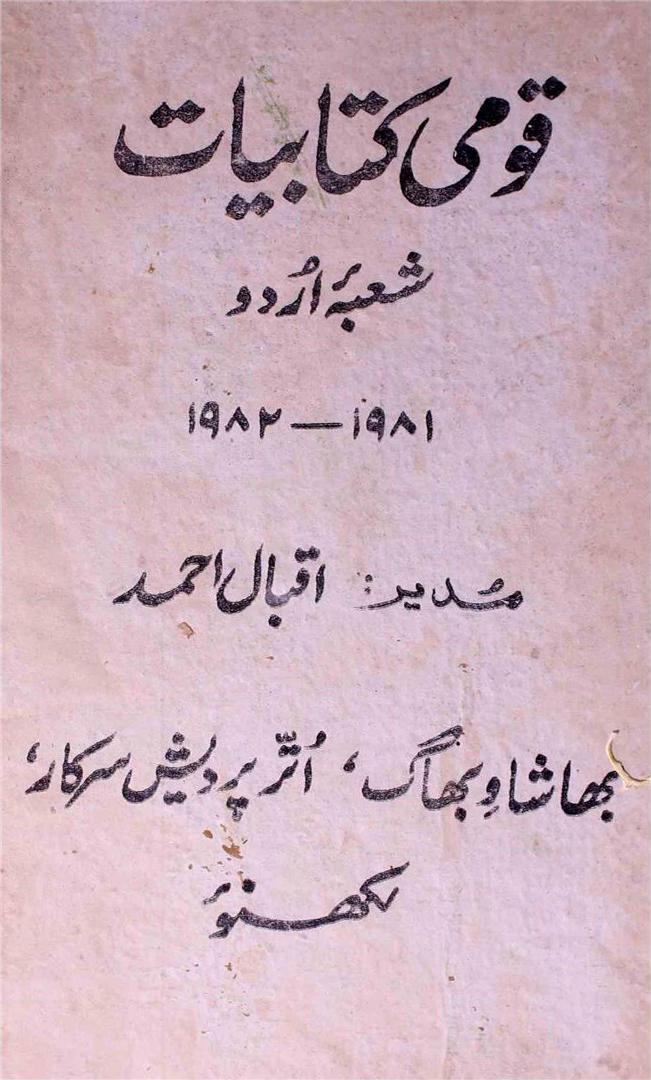 قومی کتابیات
شعبۂ اُردو
۱۹۸۱ — ۱۹۸۲
مُدیر: اقبال احمد
بھاشا وِبھاگ، اُتّر پردیش سرکار،
لکھنوٴ